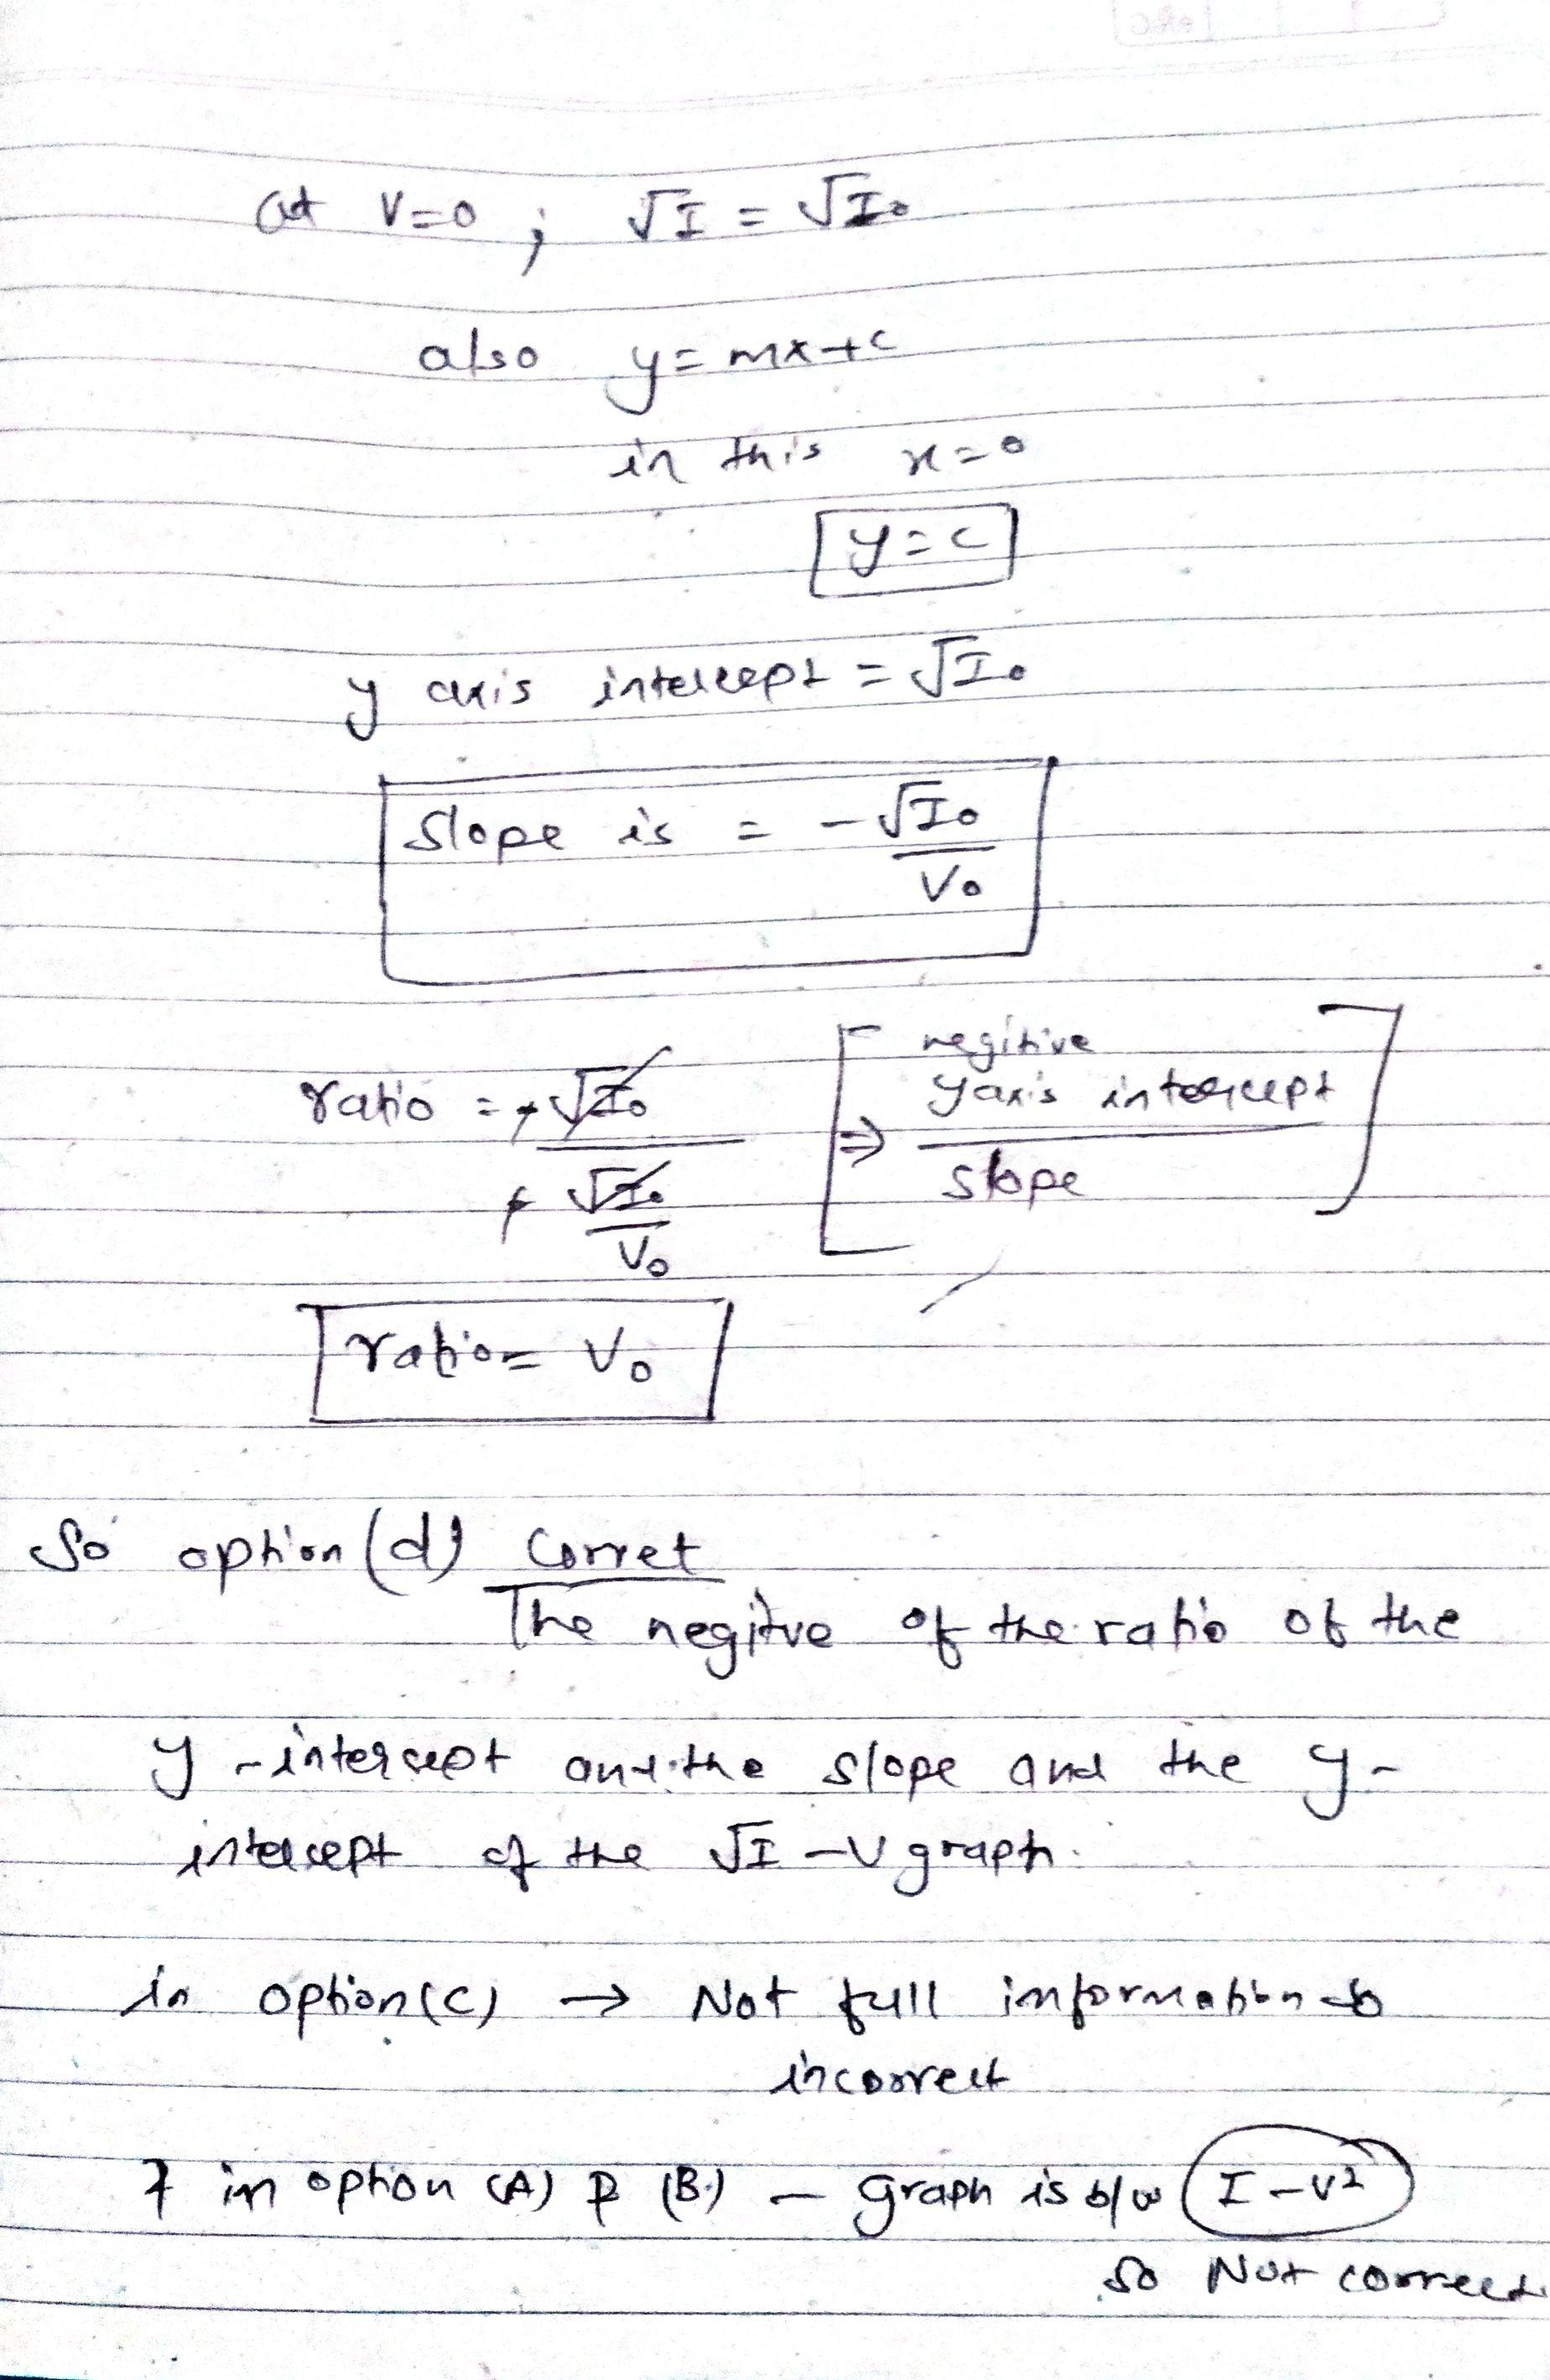 at V=0 ; √I = √I₀
also y = mx+c
in this x=0
y=c
y axis intercept = √I₀
Slope is = -√I₀/V₀
ratio = +√I₀ / +√I₀/V₀ [⇒ negitive y axis intercept / slope]
ratio = V₀
So option (d) Corret
The negitve of the ratio of the
y-intercept and the slope and the y-
intercept of the √I - V graph.
in option (C) → Not full information so
incorrect
in option (A) & (B) - graph is b/w I-V²
so Not correct